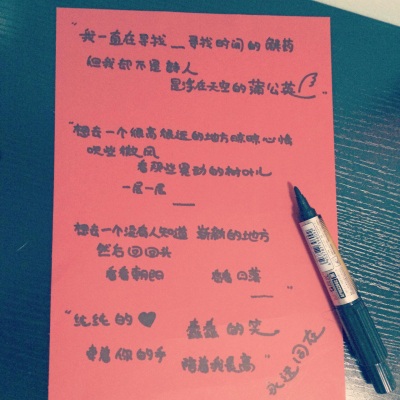 "我一直在寻找__寻找时间的解药
但我却不是路人
是浮在天空的蒲公英"
"想去一个很高很远的地方晾晾心情
吹些微风
看那些晃动的树叶儿
一层一层
——
想去一个没有人知道 崭新的地方
然后回回头
看看朝阳 看看日落
——"
"纯纯的♥ 蠢蠢的笑
牵着你的手 陪着我晃高"
永远同在